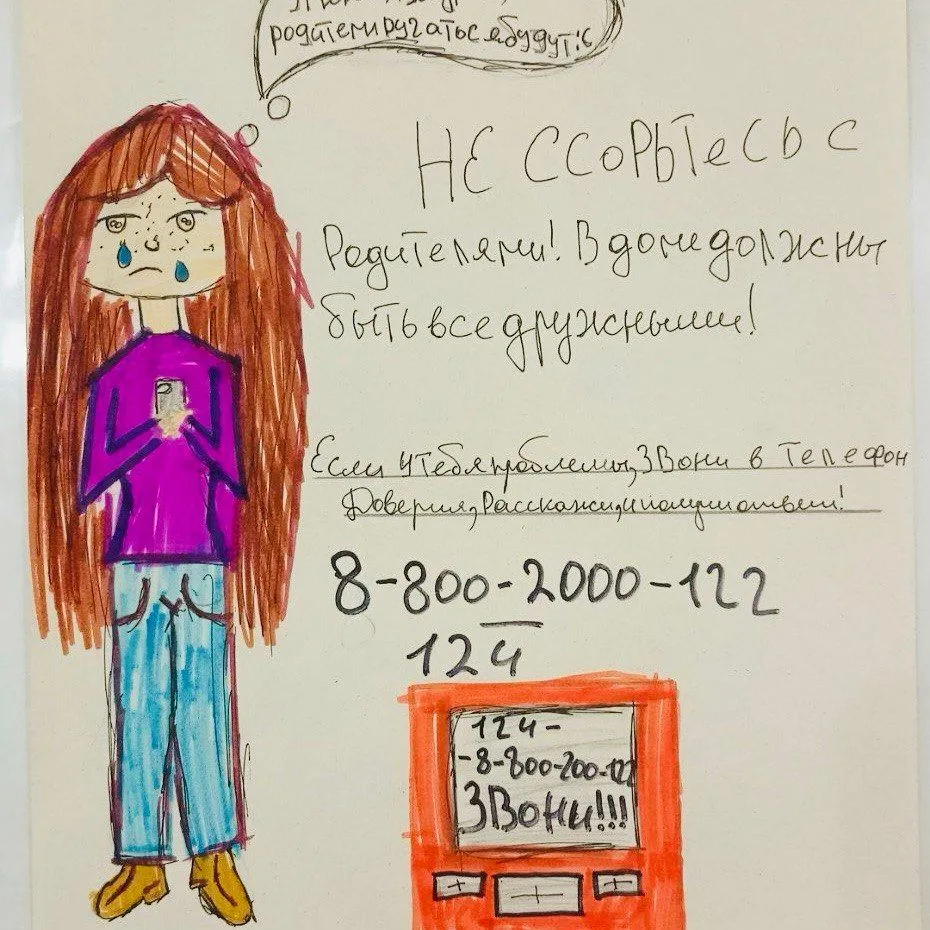 родители ругаться будут:с
НЕ ССОРЬТЕСЬ С
Родителями! В доме должны
быть все дружными!
Если у тебя проблемы, ЗВони в Телефон
Доверия, Расскажи, и получи ответ!
8-800-2000-122
124
124-
-8-800-200-122
ЗВони!!!